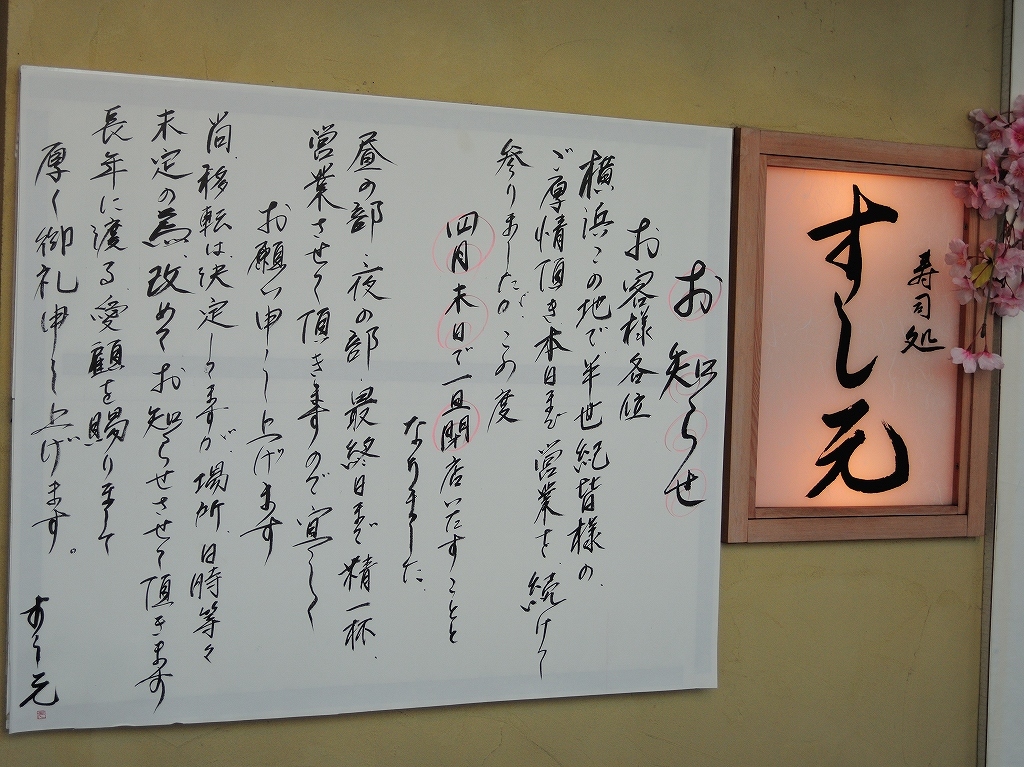 寿司処
すし元
お知らせ
お客様各位
横浜この地で半世紀皆様の
ご厚情頂き本日まで営業を続けて
参りましたが、この度
四月末日で一旦閉店いたすことと
なりました
昼の部、夜の部、最終日まで精一杯、
営業させて頂きますので宜しく
お願い申し上げます
尚、移転は決定してますが、場所、日時等々
未定の為、改めてお知らせさせて頂きます
長年に渡る愛顧を賜りまして
厚く御礼申し上げます。
すし元